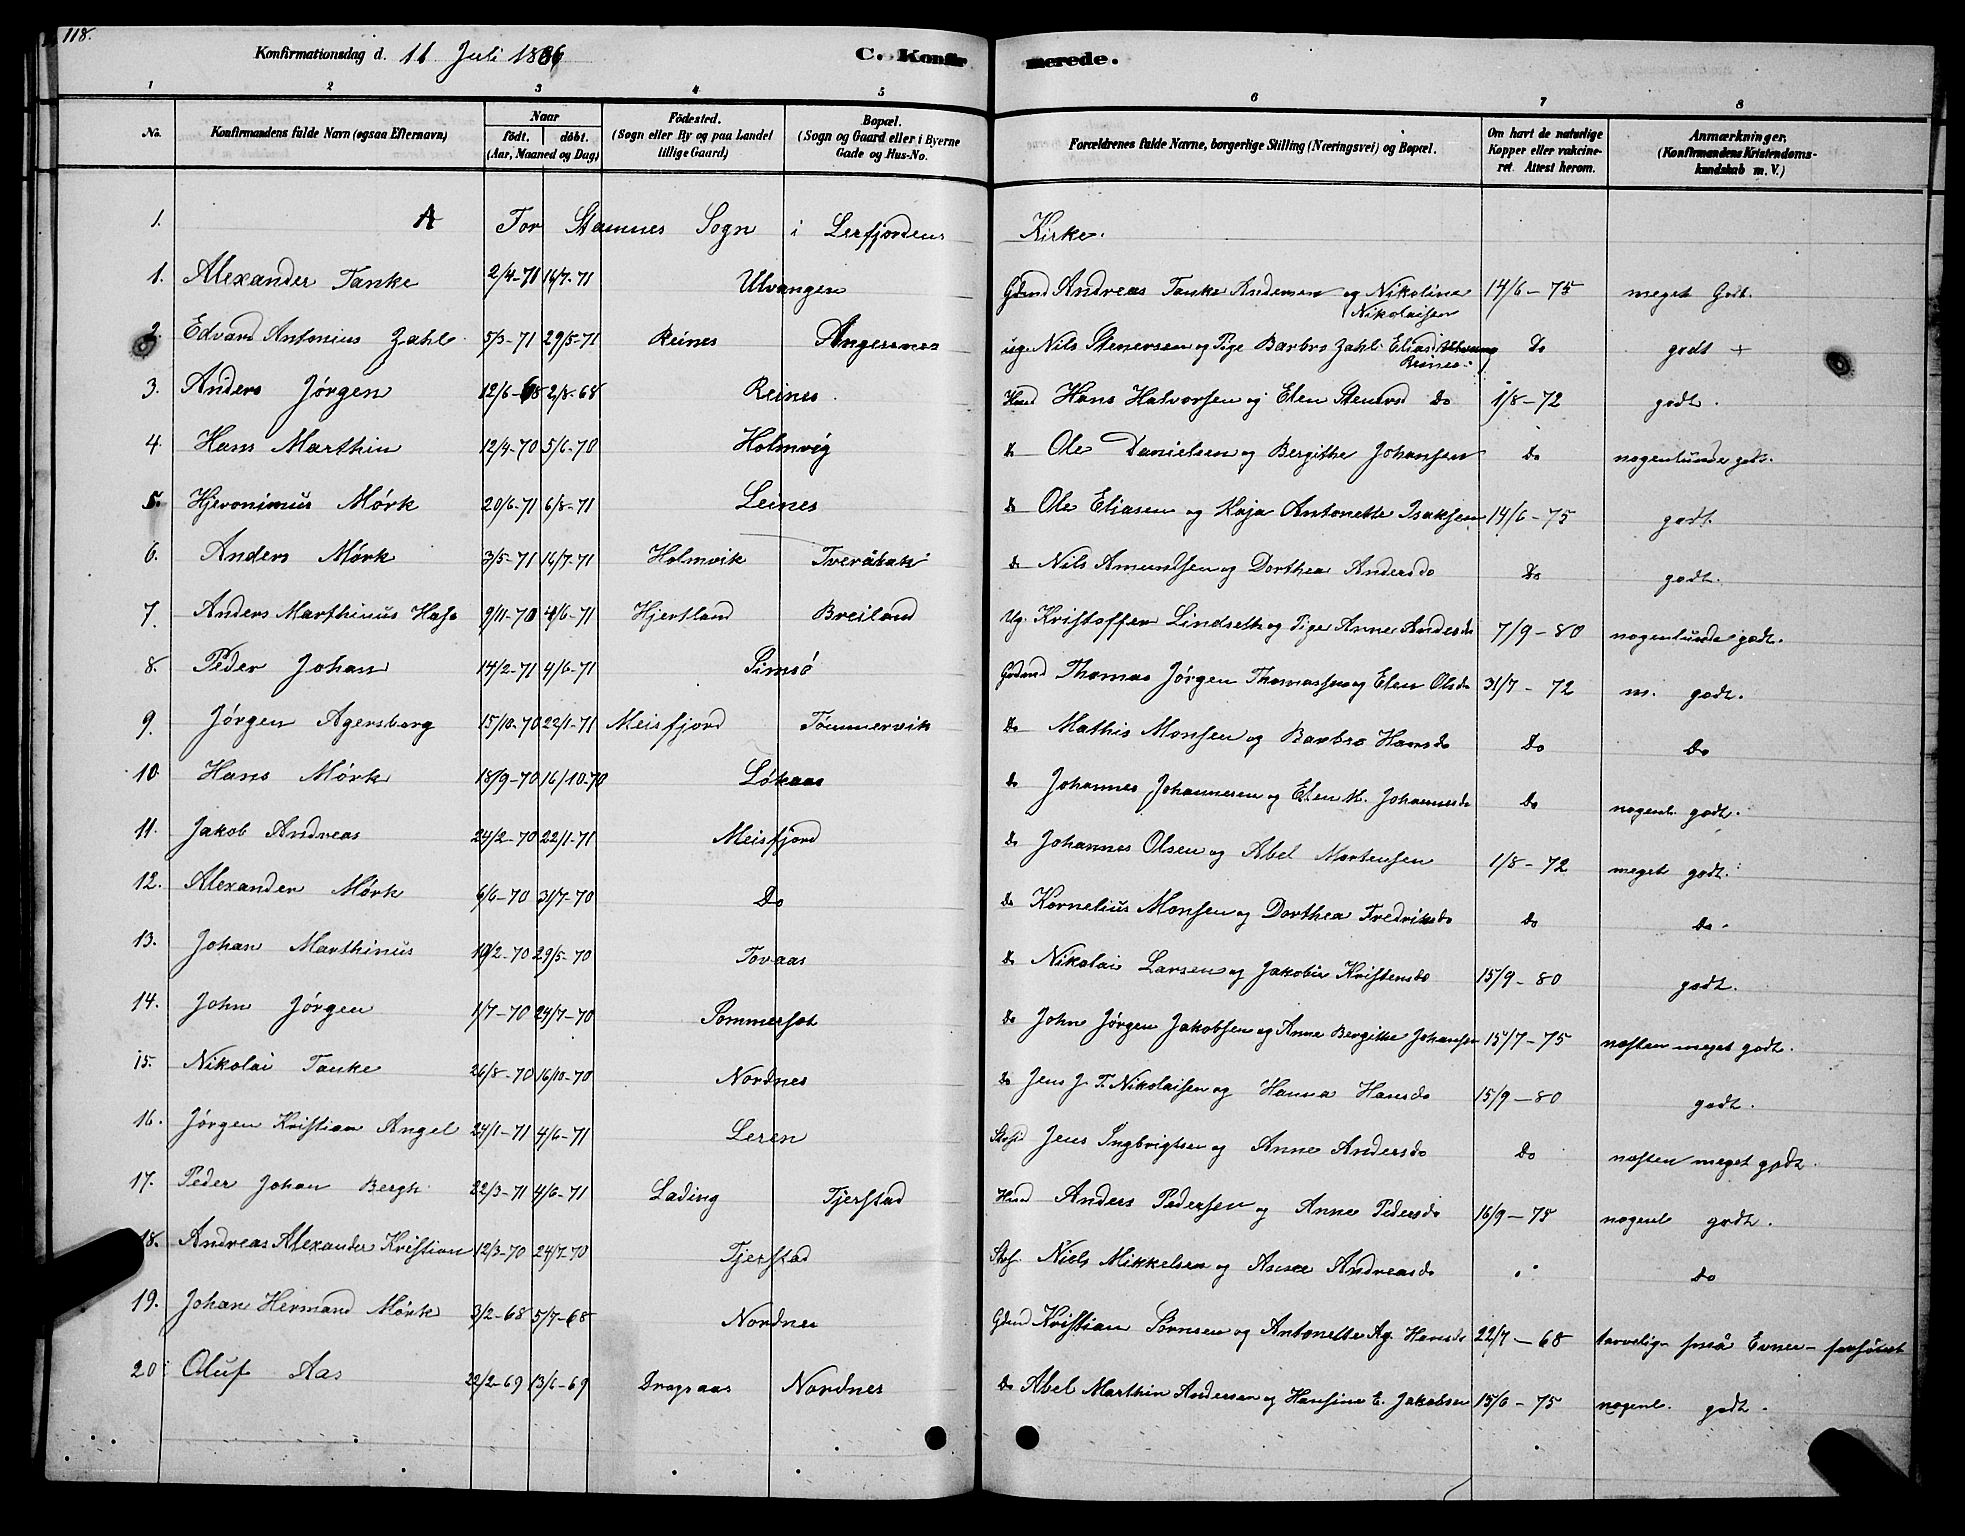 118.
Konfirmationsdag d. 11 Juli 1886
C. Konfirmerede.
1 2 3 4 5 6 7 8
No.
Konfirmandens fulde Navn (ogsaa Efternavn)
Naar
født. døbt.
(Aar, Maaned og Dag)
Fødested.
(Sogn eller By og paa Landet
tillige Gaard)
Bopæl.
(Sogn og Gaard eller i Byerne
Gade og Hus-No.
Forældrenes fulde Navne, borgerlige Stilling (Næringsvei) og Bopæl.
Om havt de naturlige
Kopper eller vakcine-
ret. Attest herom.
Anmærkninger,
(Konfirmandens Kristendoms-
kundskab m. V.)
1. A For Stamnes Sogn i Leefjordens Kirke.
1. Alexander Tanke 2/4-71 16/7-71 Ulvangen Gdmd Andreas Tanke Andersen og Nikoline Nikolaisen 14/6-75 meget Godt.
2. Edvard Antonius Zahl 5/3-71 29/5-71 Reines Angersnes ug. Nils Stenersen og Pige Barbro Zahl Eliasd Reines Do godt +
3. Anders Jørgen 12/6-68 2/8-68 Reines Hmd Hans Halvorsen og Elen Stenersd Do 1/8-72 godt.
4. Hans Marthin 12/4-70 5/6-70 Holmvig D Ole Danielsen og Bergithe Johansen Do nogenlunde godt.
5. Hjeronimus Mørk 20/6-71 6/8-71 Leines D Ole Eliasen og Kaja Antonette Isaksen 14/6-75 godt.
6. Anders Mørk 3/5-71 16/7-71 Holmvik Tveråbak D Nils Amundsen og Dorthea Andersd Do godt.
7. Anders Marthinus Hass 9/11-70 4/6-71 Hjertland Breiland Ug. Kristoffer Lindseth og Pige Anne Andersd 7/9-80 nogenlunde godt.
8. Peder Johan 14/2-71 4/6-71 Simsø Gdmd Thomas Jørgen Thomassen og Elen Olsd 31/7-72 m. godt.
9. Jørgen Agersborg 15/10-70 22/1-71 Meisfjord Tømmervik Do Mathis Monsen og Barbro Hansd Do Do
10. Hans Mørk 18/9-70 16/10-70 Løkaas Do Johannes Johannesen og Elen M. Johannesd Do nogenl. godt.
11. Jakob Andreas 24/2-70 22/1-71 Meisfjord D Johannes Olsen og Abel Mortensen 1/8-72 meget godt.
12. Alexander Mørk 6/6-70 31/7-70 Do Do Kornelius Monsen og Dorthea Fredriksd Do Do
13. Johan Marthinus 19/2-70 29/5-70 Tovaas D Nikolai Larsen og Jakobia Kristensd 15/9-80 godt.
14. John Jørgen 1/7-70 24/7-70 Sommerset Do John Jørgen Jakobsen og Anne Bergitte Johansen 15/7-75 næsten meget godt.
15. Nikolai Tanke 26/8-70 16/10-70 Nordnes Do Jens J. T. Nikolaisen og Hanna Hansd 15/9-80 godt.
16. Jørgen Kristian Angel 24/1-71 4/6-71 Leren Jens Ingbrigtsen og Anne Andersd Do næsten meget godt.
17. Peder Johan Bergh 22/3-71 4/6-71 Lading Tjerstad Hmd Anders Pedersen og Anne Pedersd 16/9-75 nogenl godt.
18. Andreas Alexander Kristian 12/3-70 24/7-70 Tjerstad Niels Mikkelsen og Andreasd Do
19. Johan Hermand Mørk 3/2-68 5/7-68 Nordnes Gdmd Kristian Sørnsen og Antonette Ag. Hansd 22/7-68 tarvelig - små Evner - forsømt
20. Oluf Aas 22/2-69 13/6-69 Dragsaas Nordnes Do Abel Marthin Andersen og Hansine E. Jakobsen 15/6-75 nogenl. godt.